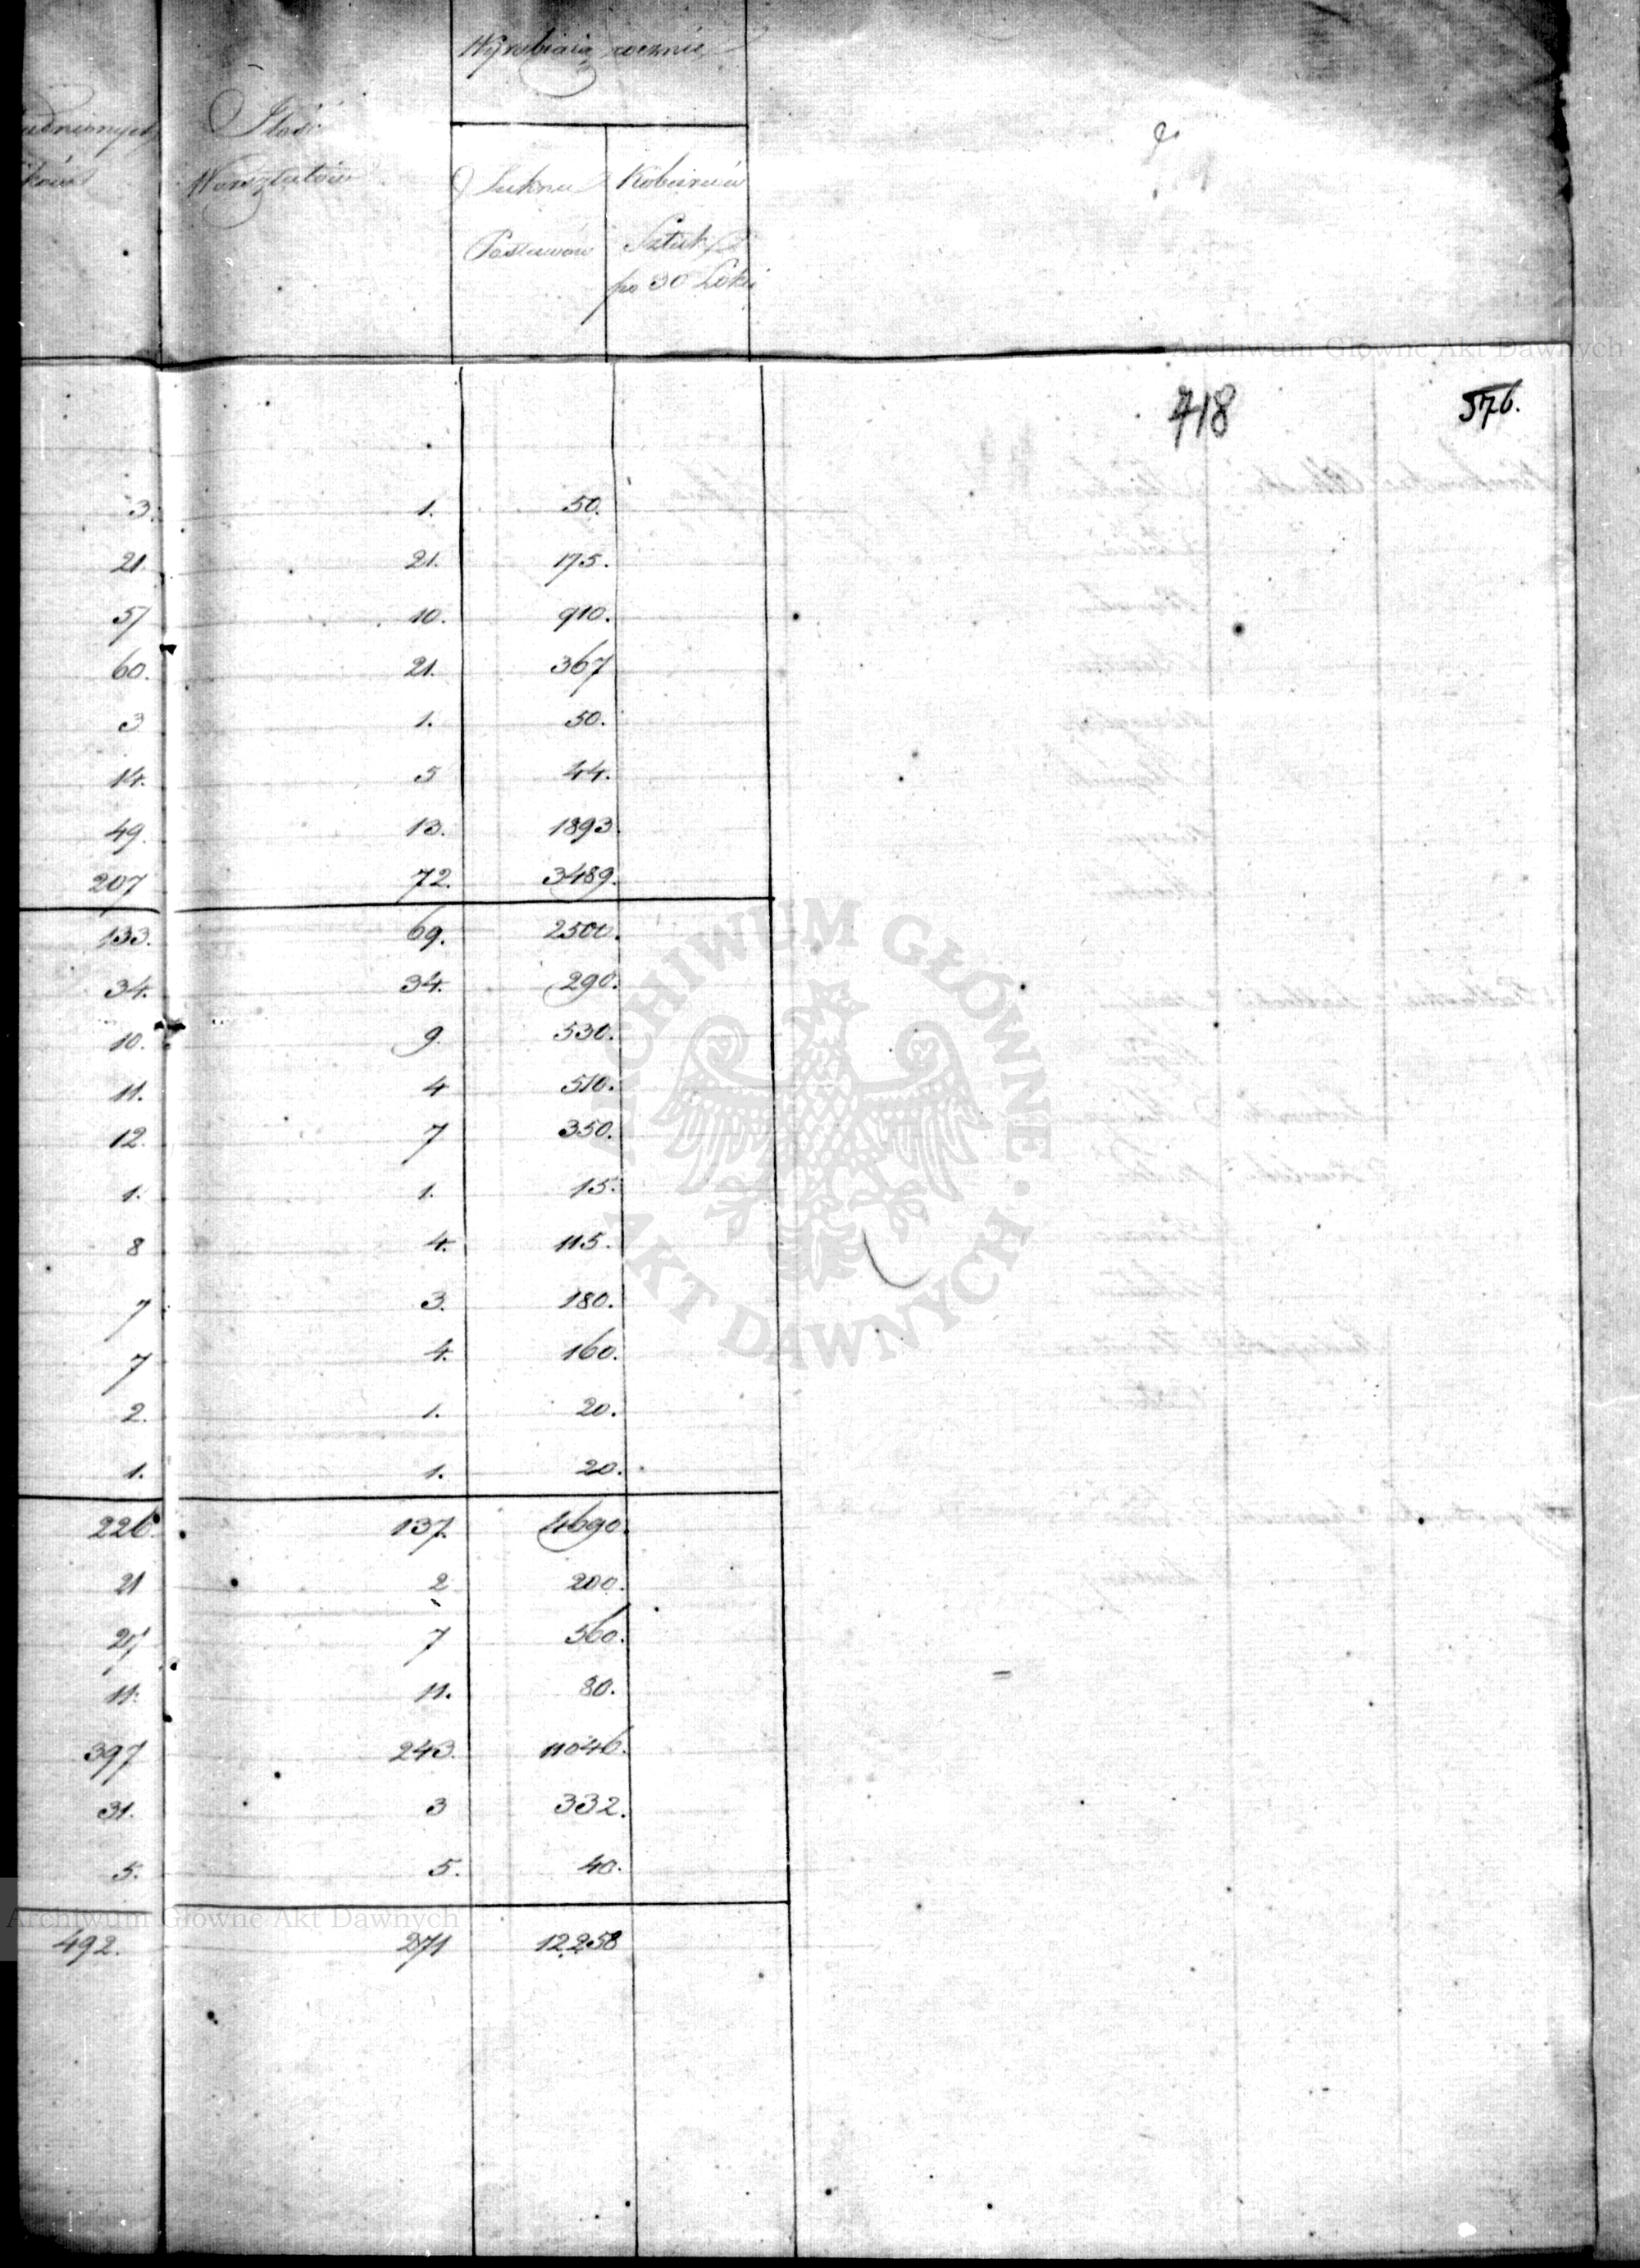 Wyrabiaią rocznie
udnionych Ilość
ików Warsztatów Sukna Kobierców
Postawów Sztuk
po 30 Łokci
Archiwum Główne Akt Dawnych
718 576.
3. 1. 50.
21. 21. 175.
57 10. 910.
60. 21. 367
3 1. 50.
14. 5 44.
49. 13. 1893.
207 72. 3489.
133. 69. 2500.
34. 34. 290.
10. 9. 530.
11. 4 510.
12. 7 350.
1. 1. 15.
8 4. 115.
7 3. 180.
7 4. 160.
2. 1. 20.
1. 1. 20.
226. 137. 4690.
21 2 200.
27 7 560.
11. 11. 80.
397 243. 11046.
31. 3 332.
5. 5. 40.
Archiwum Główne Akt Dawnych
492. 271 12,258
ARCHIWUM GŁÓWNE AKT DAWNYCH